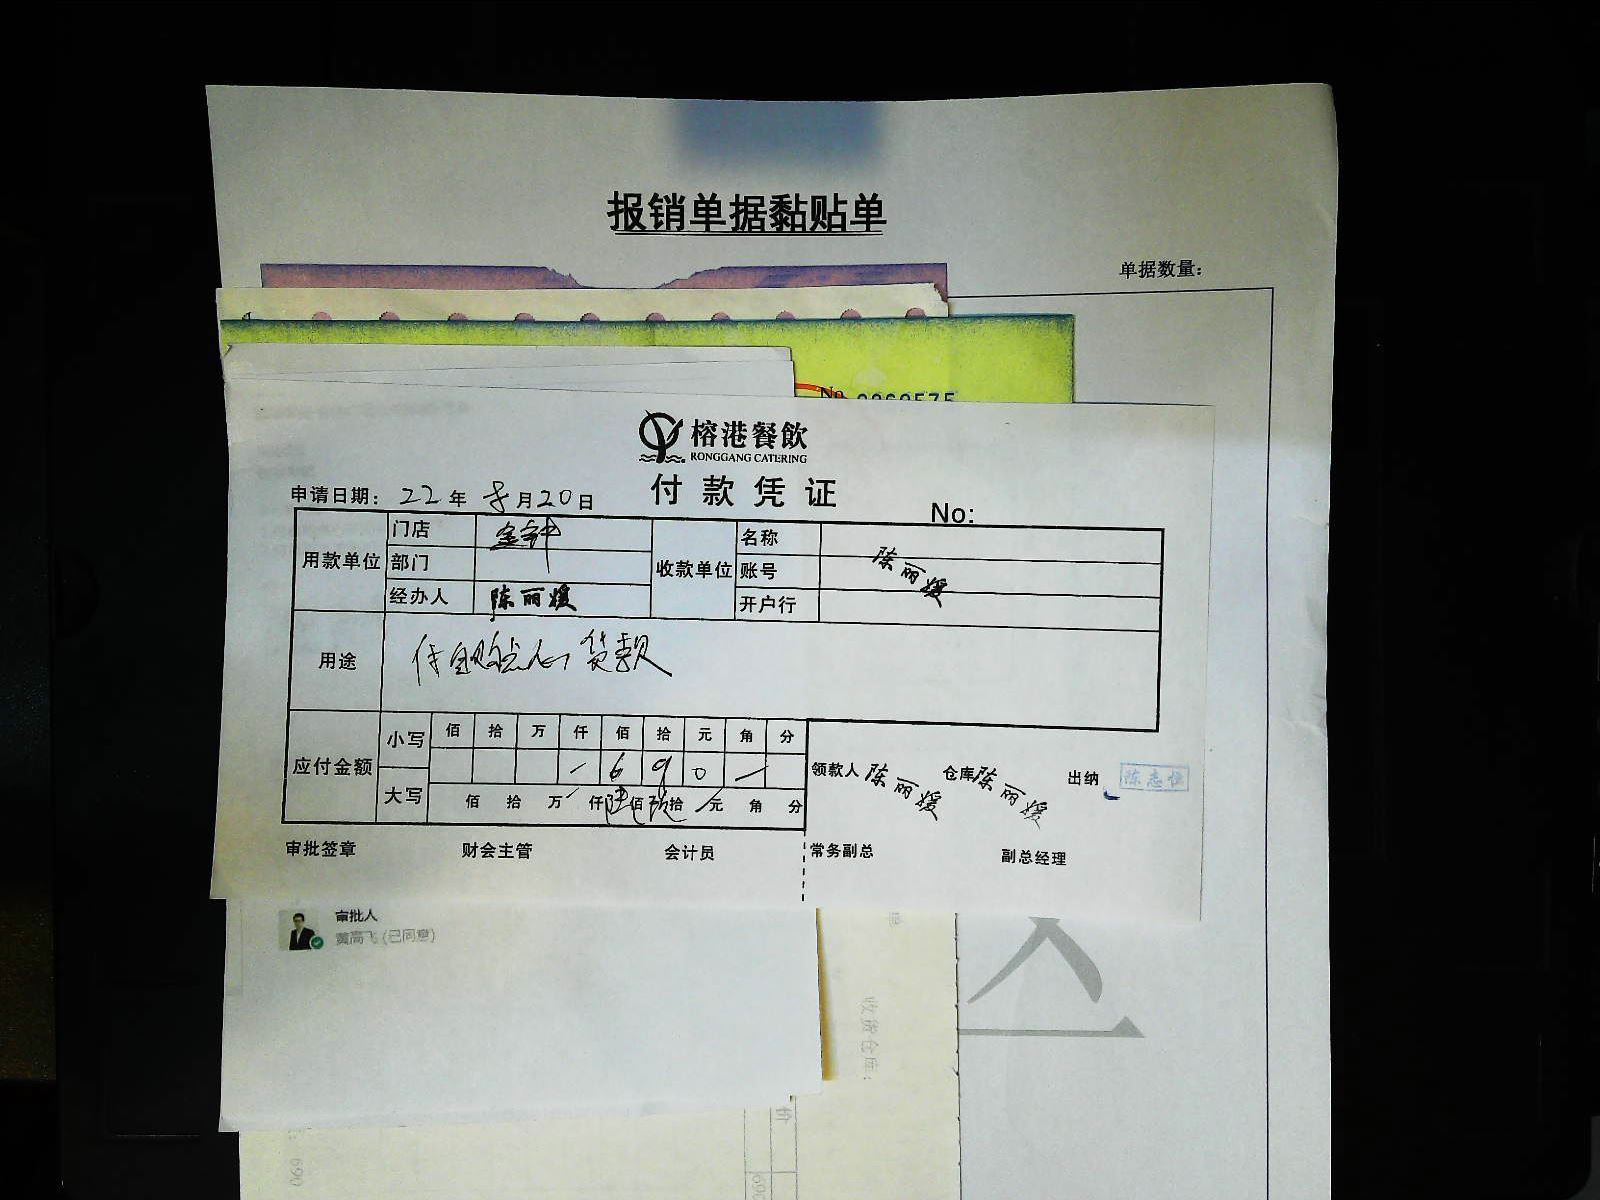 报销单据黏贴单
单据数量：
No
榕港餐飲
RONGGANG CATERING
付款凭证
申请日期：22年8月20日
No:
用款单位 门店 金钟 收款单位 名称
部门 账号 陈丽媛
经办人 陈丽媛 开户行
用途 货款
应付金额 小写 佰 拾 万 仟 佰 拾 元 角 分
6 9 0
大写 佰 拾 万 仟 陆佰 玖拾 元 角 分
领款人 陈丽媛 仓库 陈丽媛 出纳
审批签章 财会主管 会计员 常务副总 副总经理
审批人
黄高飞(已同意)
收货仓库：
690